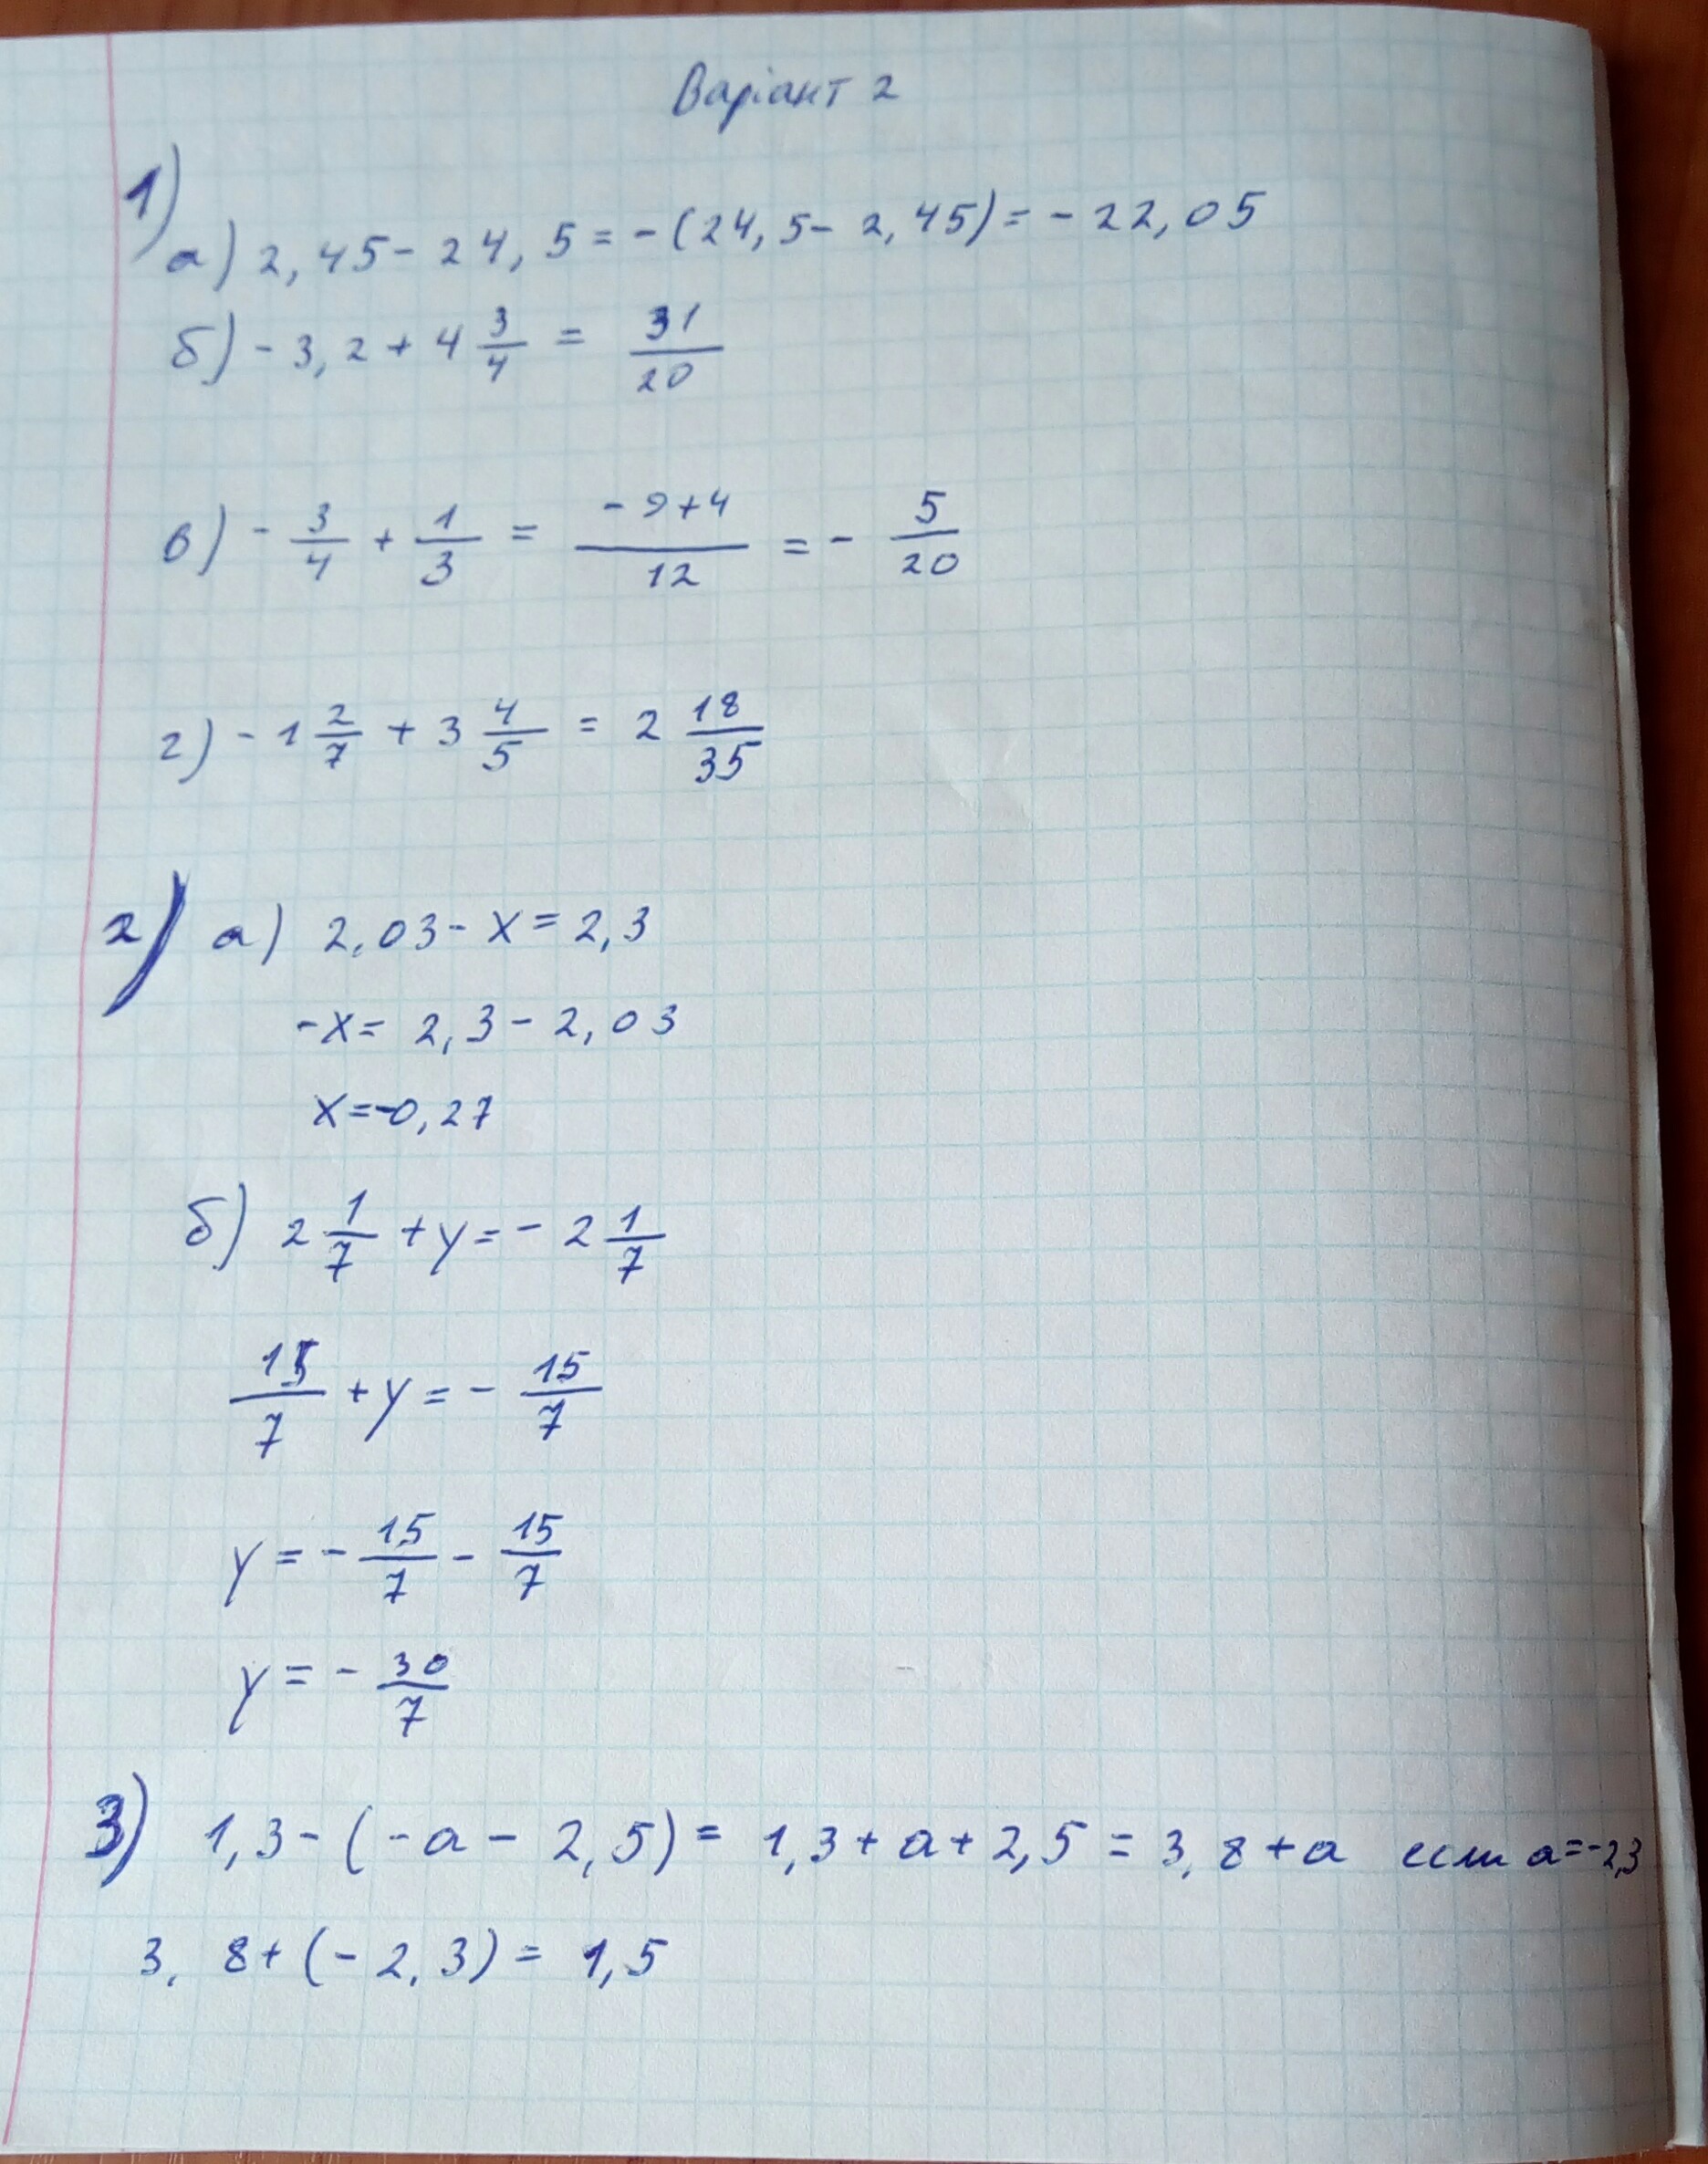 Варіант 2
1)
а) 2,45 - 24,5 = -(24,5 - 2,45) = -22,05
б) -3,2 + 4 3/4 = 31/20
в) - 3/4 + 1/3 = (-9+4)/12 = - 5/20
г) -1 2/7 + 3 4/5 = 2 18/35
2) а) 2,03 - x = 2,3
-x = 2,3 - 2,03
x = -0,27
б) 2 1/7 + y = - 2 1/7
15/7 + y = - 15/7
y = - 15/7 - 15/7
y = - 30/7
3) 1,3 - (-a - 2,5) = 1,3 + a + 2,5 = 3,8 + a если a = -2,3
3,8 + (-2,3) = 1,5